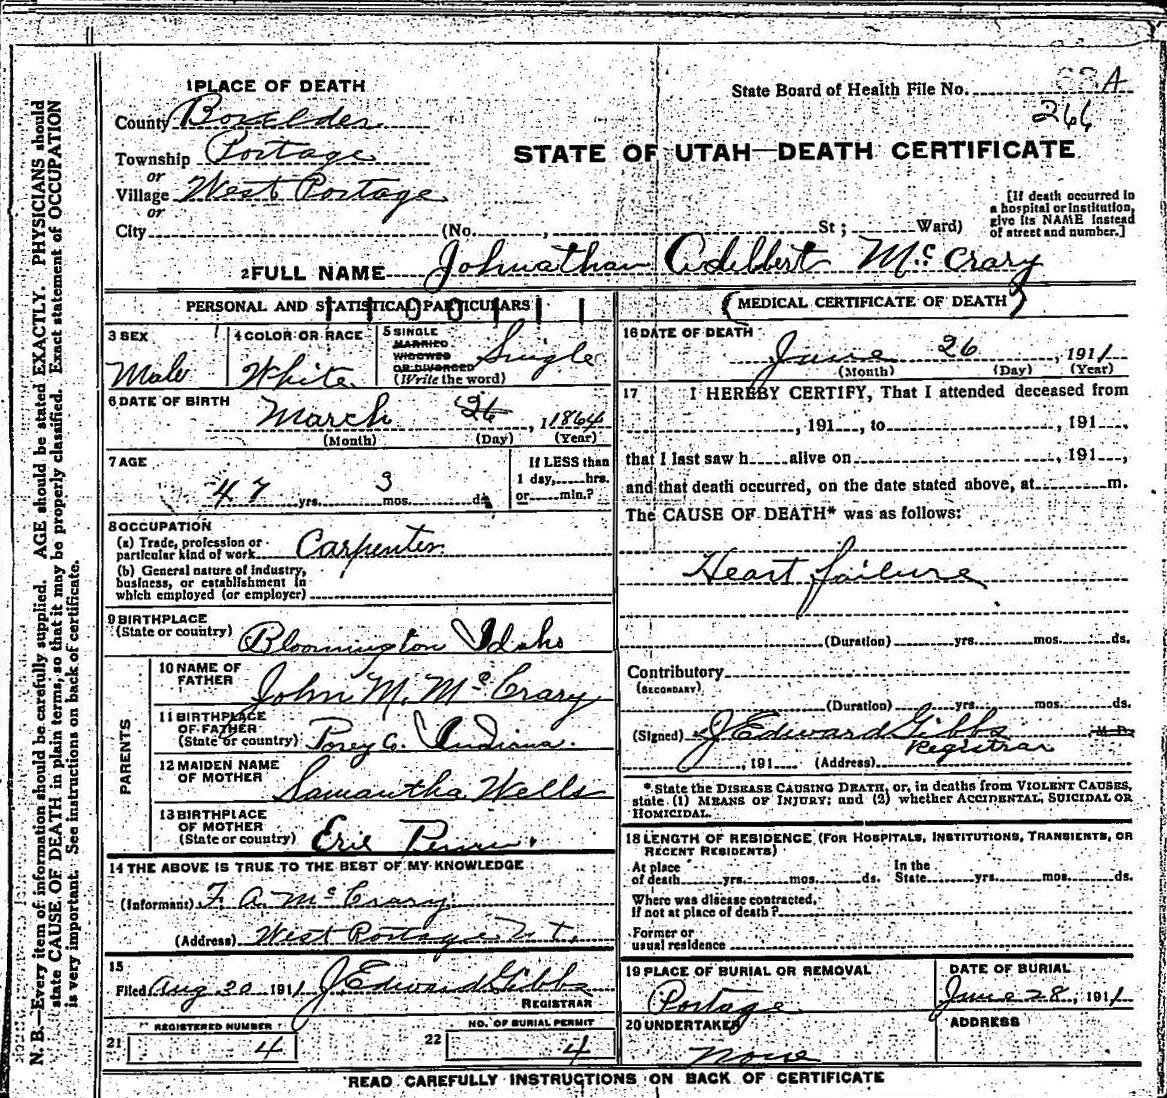 N. B.—Every item of information should be carefully supplied. AGE should be stated EXACTLY. PHYSICIANS should
state CAUSE OF DEATH in plain terms, so that it may be properly classified. Exact statement of OCCUPATION
is very important. See instructions on back of certificate.
1 PLACE OF DEATH
County Boxelder
Township Portage
or
Village West Portage
or
City
State Board of Health File No. A
266
STATE OF UTAH—DEATH CERTIFICATE
(No. , St ; Ward)
[If death occurred in
a hospital or institution,
give its NAME instead
of street and number.]
2 FULL NAME Johnathan Adelbert Mc Crary
PERSONAL AND STATISTICAL PARTICULARS
3 SEX
Male
4 COLOR OR RACE
White
5 SINGLE
MARRIED
WIDOWED
OR DIVORCED
(Write the word)
Single
6 DATE OF BIRTH
March 26, 1864
(Month) (Day) (Year)
7 AGE
47 yrs. 3 mos. ds.
If LESS than
1 day, hrs.
or min.?
8 OCCUPATION
(a) Trade, profession or
particular kind of work Carpenter
(b) General nature of industry,
business, or establishment in
which employed (or employer)
9 BIRTHPLACE
(State or country) Bloomington Idaho
PARENTS
10 NAME OF
FATHER John M. Mc Crary
11 BIRTHPLACE
OF FATHER
(State or country) Posey Co. Indiana.
12 MAIDEN NAME
OF MOTHER Samantha Wells
13 BIRTHPLACE
OF MOTHER
(State or country) Erie
14 THE ABOVE IS TRUE TO THE BEST OF MY KNOWLEDGE
(Informant) F. A. Mc Crary
(Address) West Portage Ut.
15
Filed Aug 30 1911 J Edward Gibbs
REGISTRAR
21 REGISTERED NUMBER
4
22 NO. OF BURIAL PERMIT
4
MEDICAL CERTIFICATE OF DEATH
16 DATE OF DEATH
June 26, 1911
(Month) (Day) (Year)
17 I HEREBY CERTIFY, That I attended deceased from
, 191 , to , 191 .
that I last saw h alive on , 191 ,
and that death occurred, on the date stated above, at m.
The CAUSE OF DEATH* was as follows:
Heart failure
(Duration) yrs. mos. ds.
Contributory
(SECONDARY)
(Duration) yrs. mos. ds.
(Signed) J Edward Gibbs M. D.
Registrar
, 191 (Address)
*State the DISEASE CAUSING DEATH, or, in deaths from VIOLENT CAUSES,
state (1) MEANS OF INJURY; and (2) whether ACCIDENTAL, SUICIDAL OR
HOMICIDAL.
18 LENGTH OF RESIDENCE (FOR HOSPITALS, INSTITUTIONS, TRANSIENTS, OR
RECENT RESIDENTS)
At place In the
of death yrs. mos. ds. State yrs. mos. ds.
Where was disease contracted,
If not at place of death?
Former or
usual residence
19 PLACE OF BURIAL OR REMOVAL
Portage
DATE OF BURIAL
June 28, 1911
20 UNDERTAKER
None
ADDRESS
READ CAREFULLY INSTRUCTIONS ON BACK OF CERTIFICATE